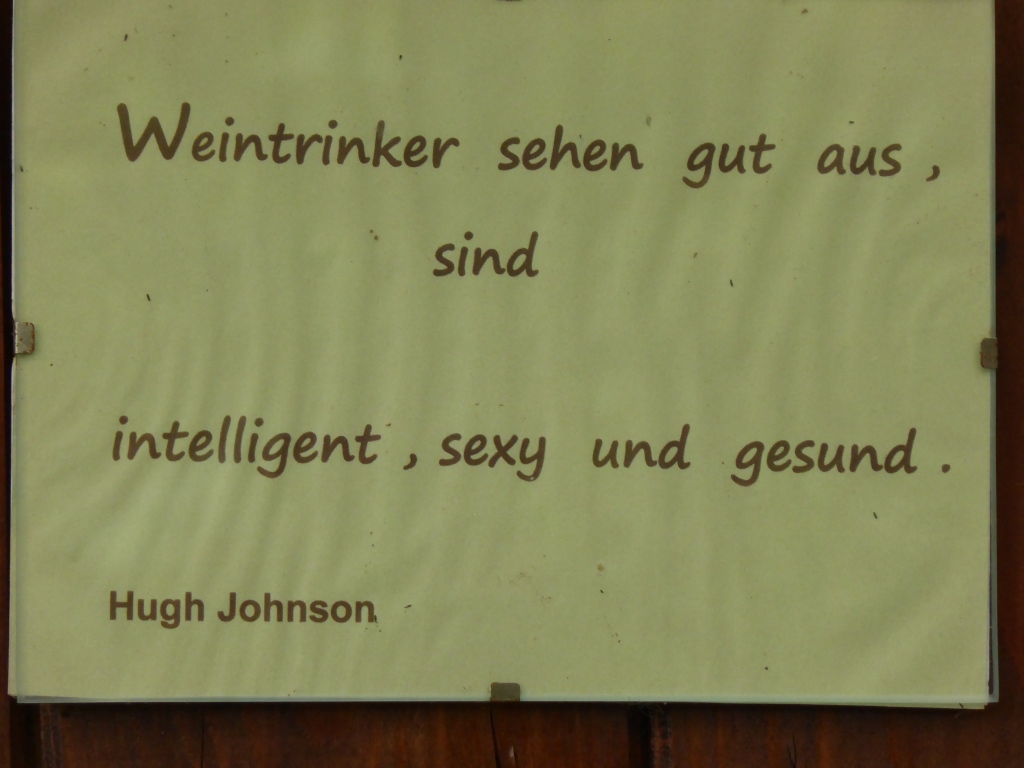 Weintrinker sehen gut aus ,
sind
intelligent , sexy und gesund .
Hugh Johnson